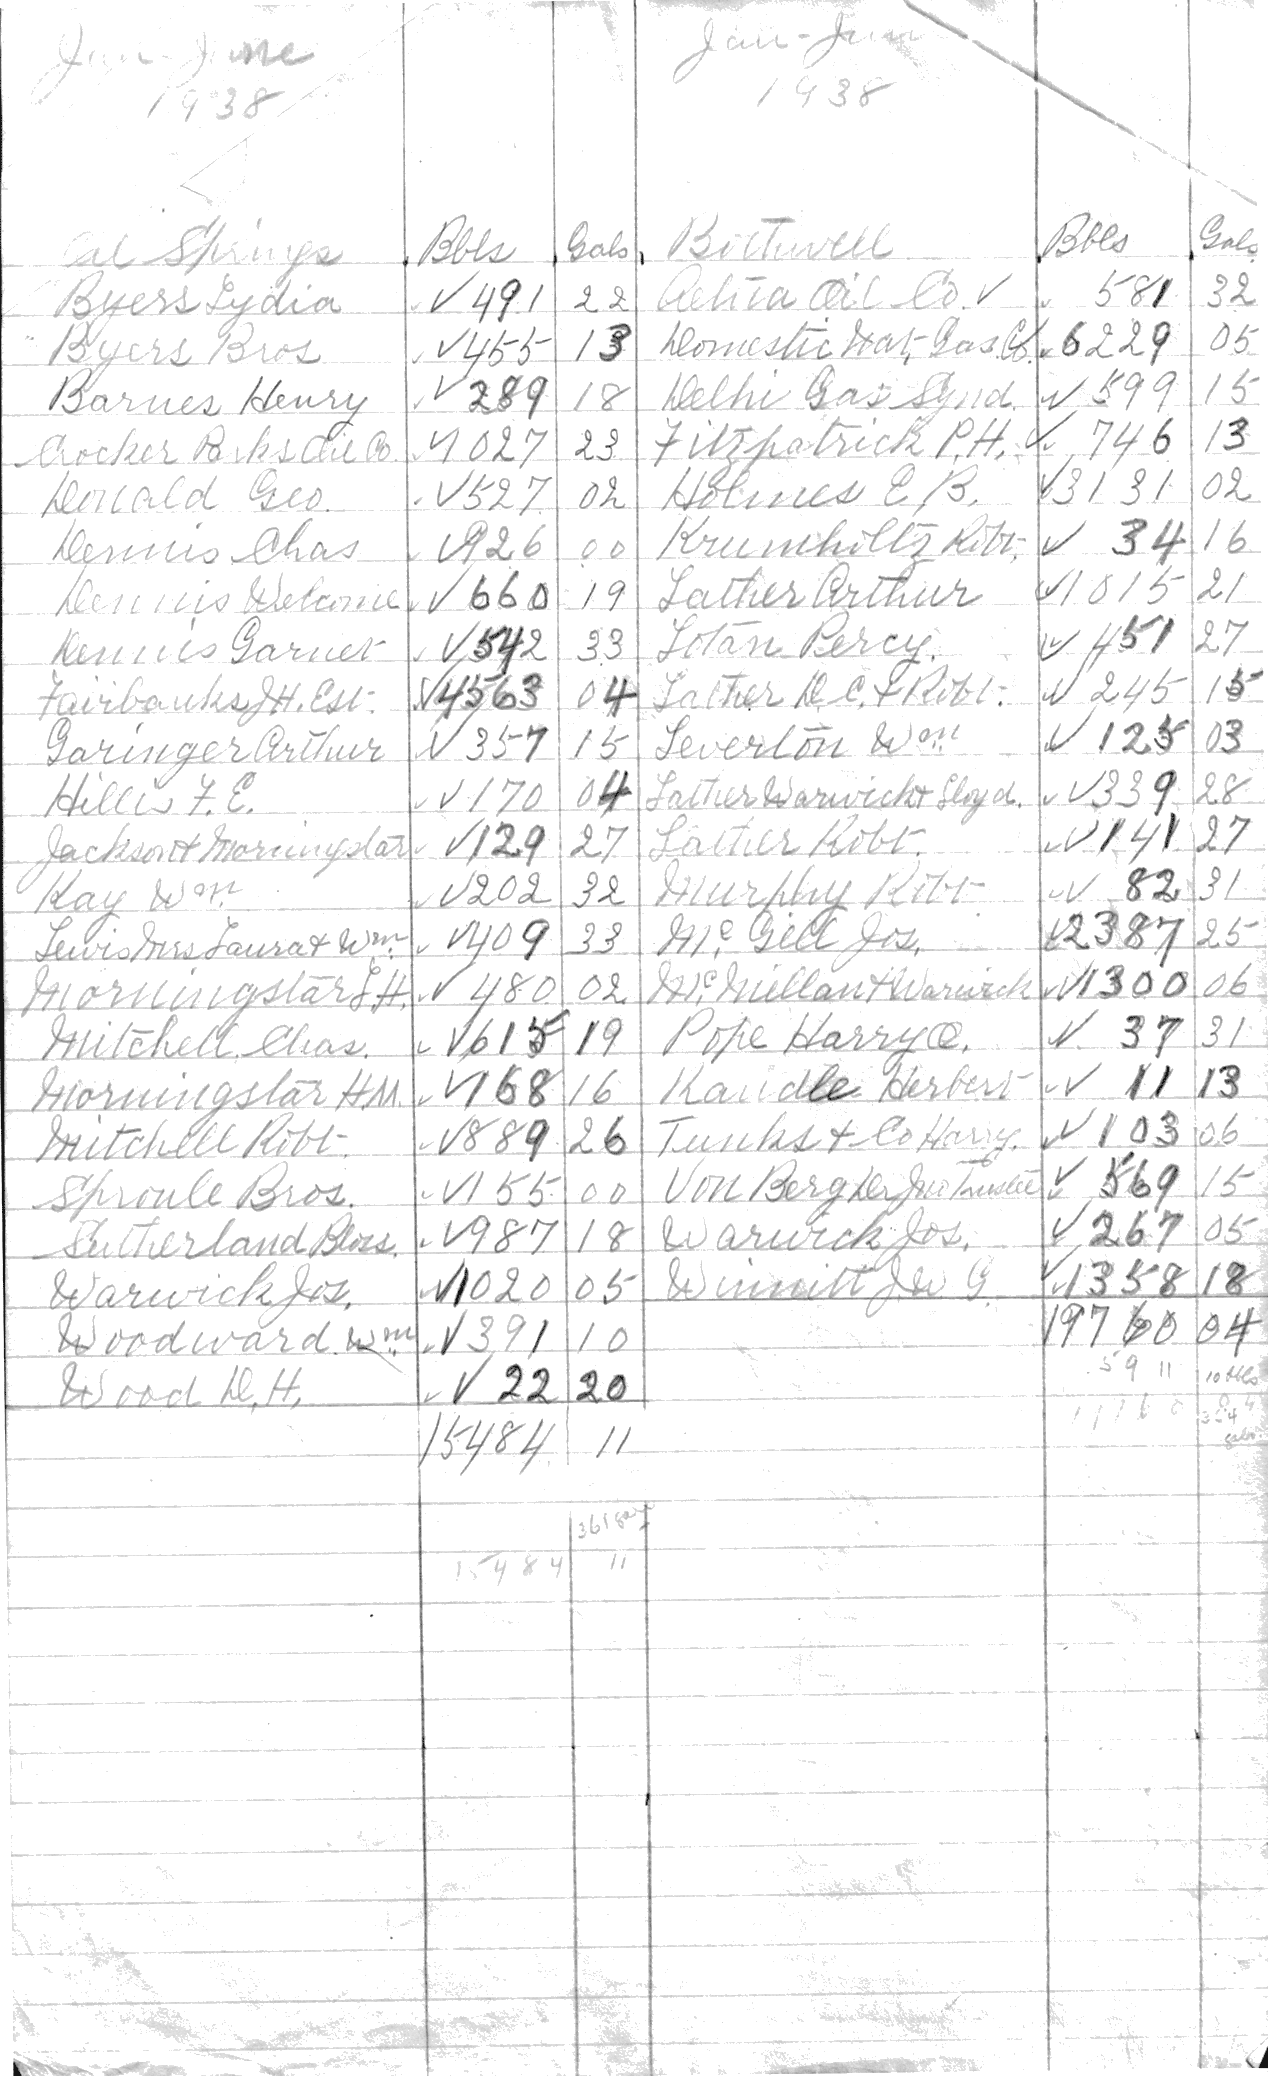 Jan-June
1938
Oil Springs Bbls Gals
Byers Lydia ✓ 491 22
Byers Bros ✓ 455 13
Barnes Henry ✓ 289 18
Crocker Parks Oil Co. ✓ 1027 23
Donald Geo. ✓ 527 02
Dennis Chas ✓ 926 00
Dennis Welcome ✓ 660 19
Dennis Garnet ✓ 542 33
Fairbanks J.H. Est. ✓ 4563 04
Garinger Arthur ✓ 357 15
Hillis F. E. ✓ 170 04
Jackson & Morningstar ✓ 129 27
Kay Wm. ✓ 202 32
Lewis Mrs Laura & Wm. ✓ 409 33
Morningstar L.H. ✓ 480 02
Mitchell Chas. ✓ 615 19
Morningstar H.M. ✓ 168 16
Mitchell Robt. ✓ 889 26
Sproule Bros. ✓ 155 00
Sutherland Bros. ✓ 987 18
Warwick Jos. ✓ 1020 05
Woodward Wm. ✓ 391 10
Wood D. H. ✓ 22 20
15484 11
361 gals
15484 11
Jan-June
1938
Bothwell Bbls Gals
Aetna Oil Co. ✓ 581 32
Domestic Nat. Gas. Co. ✓ 6229 05
Delhi Gas Synd. ✓ 599 15
Fitzpatrick P.H. ✓ 746 13
Holmes E. B. ✓ 3131 02
Krumholtz Robt. ✓ 34 16
Lather Arthur ✓ 1015 21
Lotan Percy. ✓ 451 27
Lather D. C. & Robt. ✓ 245 15
Leverton Wm ✓ 125 03
Lather Warwick & Lloyd. ✓ 339 28
Lather Robt. ✓ 141 27
Murphy Robt ✓ 82 31
McGill Jos. ✓ 2387 25
McMillan & Warwick ✓ 1300 06
Pope Harry O. ✓ 37 31
Randle Herbert ✓ 11 13
Tunks & Co Harry. ✓ 103 06
Von Berg Dr Jno Trustee ✓ 569 15
Warwick Jos. ✓ 267 05
Winnitt J.W G. ✓ 1358 18
19760 04
5 9 11 10 bbls
354
gals.